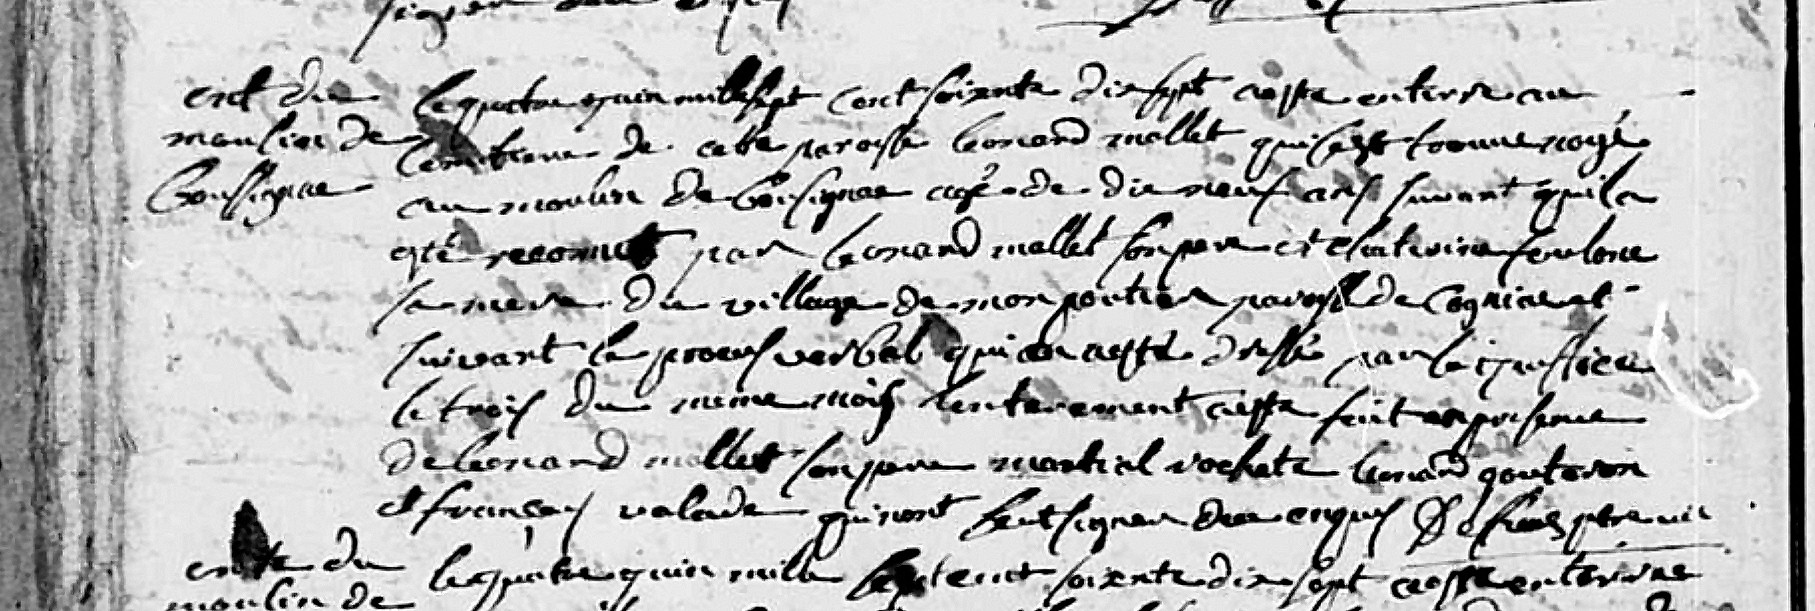 ent du
moulin de
boussignac
le quatre juin mille sept cent soixante dix sept a este enterre au
cemetiere de cette paroisse leonard mallet qui s'est trouve noyé
au moulin de bousignac agé de dix neuf ans suivant qu'il a
esté reconnut par leonard mallet son pere et chaterine
sa mere du village de monpoutier paroisse de cogniac et
suivant le proces verbal qui en a esté dressé par la justice
le trois du meme mois l'enterement a este fait en presence
de leonard mallet son pere martial rochete leonard gouteron
et françois valade qui n'ont seut signer de ce enquis
ente du
moulin de
le quatre juin mile sept cent soixente dix sept a este enterrne